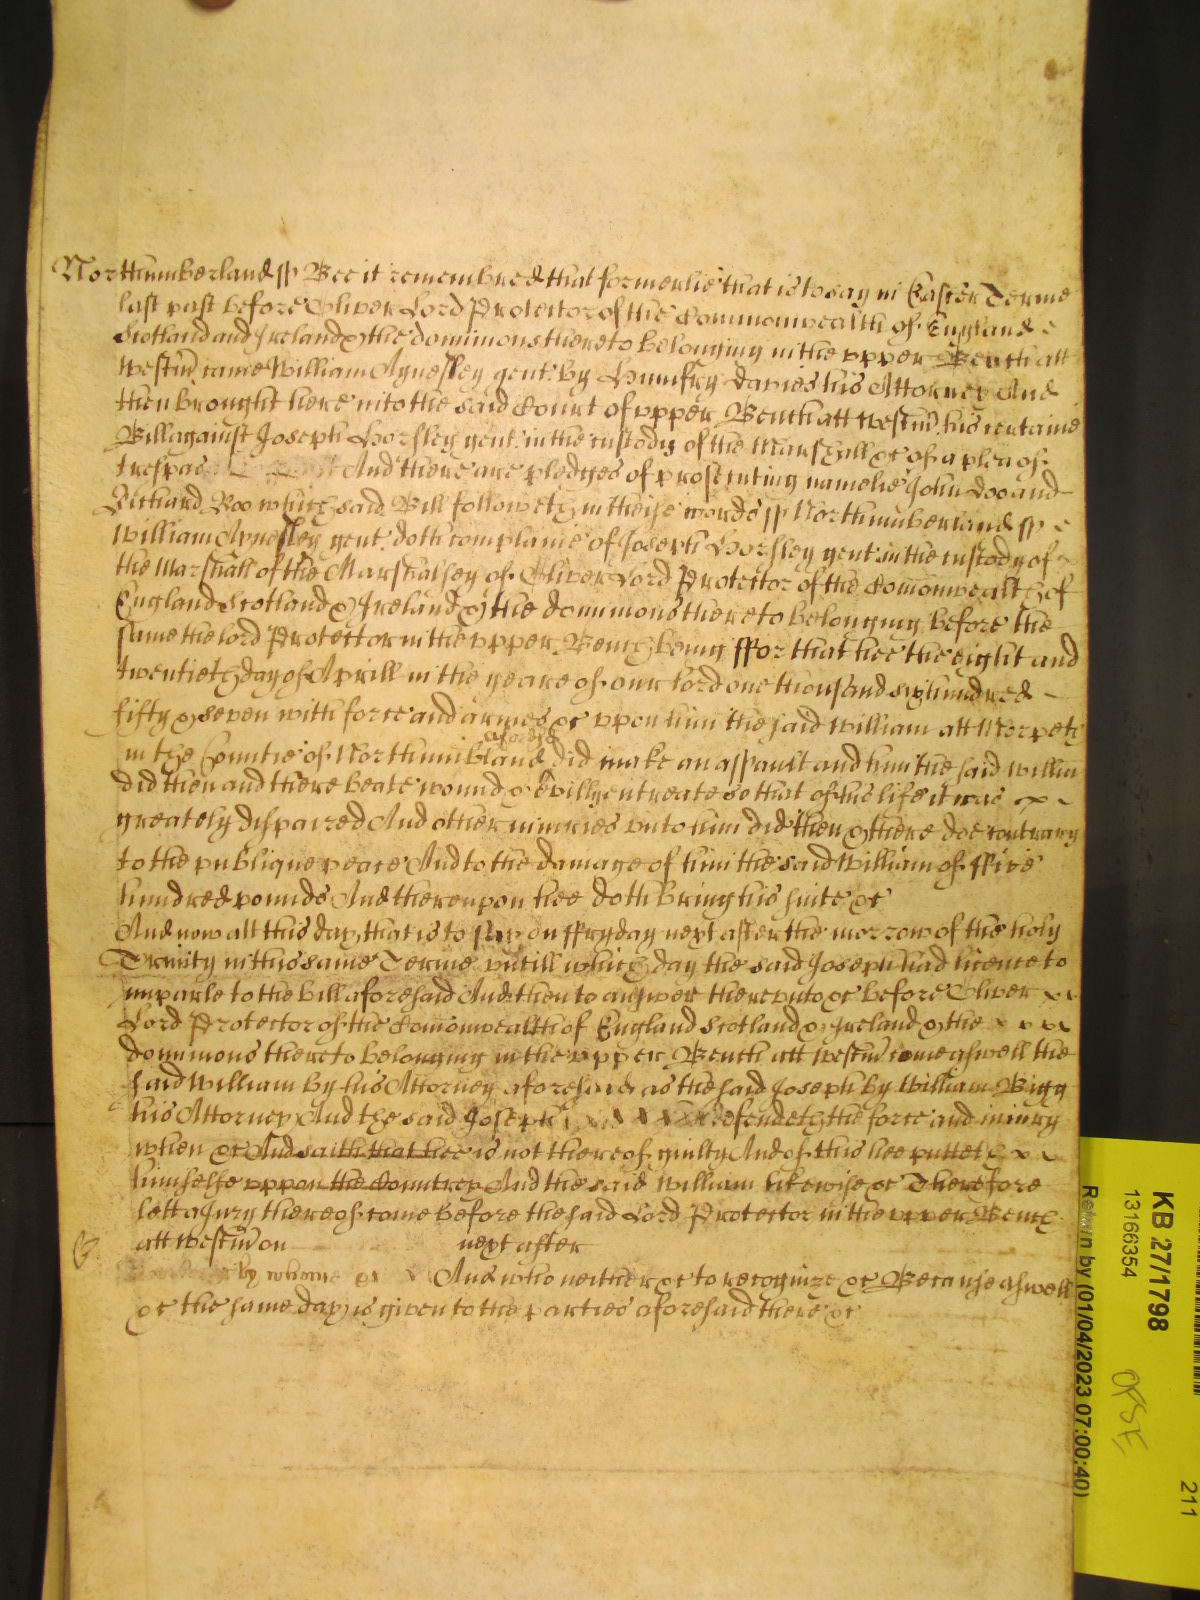 Northumberland ss Bee it remembred that formerlie that is to say in Easter Terme
last past before Oliver Lord Protector of the Commonwealth of England
Scotland and Ireland & the dominions thereto belonging in the upper Bench att
Westm̃ came William Aynesley gent. by Humfry Davies his Attorney And
then brought here into the said Court of upper Bench att Westm̃ his certaine
Bill against Joseph Horsley gent. in the custody of the Marshall &c of a plea of
trespas And there are pledges of prosecuting namelie John Doo and
Richard Roo which said Bill followeth in theise words ss Northumberland ss
William Aynesley gent. doth complaine of Joseph Horsley gent. in the custody of
the Marshall of the Marshalsey of Oliver Lord Protector of the Com̃onwealth of
England Scotland & Ireland & the dominions thereto belonging before the
same the lord Protector in the upper Bench being ffor that hee the eight and
twentieth day of Aprill in the yeare of our lord one thousand six hundred
fifty & seven with force and armes &c uppon him the said William att Morpeth
in the Countie of Northumb̃land aforesd did make an assault and him the said Willm̃
did then and there beate wound & evilly entreate so that of his life it was
greately dispaired And other iniuries unto him did then & there doe contrary
to the publique peace And to the damage of him the said William of ffive
hundred pounds And thereupon hee doth bring his suite &c
And now att this day that is to say on ffryday next after the morrow of the holy
Trinity in this same Terme untill which day the said Joseph had licence to
imparle to the bill aforesaid And then to answer thereunto &c before Oliver
Lord Protector of the Com̃onwealth of England Scotland & Ireland & the
dominions thereto belonging in the upper Bench att Westm̃ come aswell the
said William by his Attorney aforesaid as the said Joseph by William Bigg
his Attorney And the said Joseph defendeth the force and iniury
when &c And saith that hee is not thereof guilty And of this hee putteth
himselfe uppon the Countrey And the said William likewise &c Therefore
lett a Jury thereof come before the said Lord Protector in the upper Bench
att Westm̃ on next after
by whome &c And who neither &c to recognize &c Because aswell
&c the same day is given to the parties aforesaid there &c
KB 27/1798
13166354
Return by (01/04/2023 07:00:40)
211